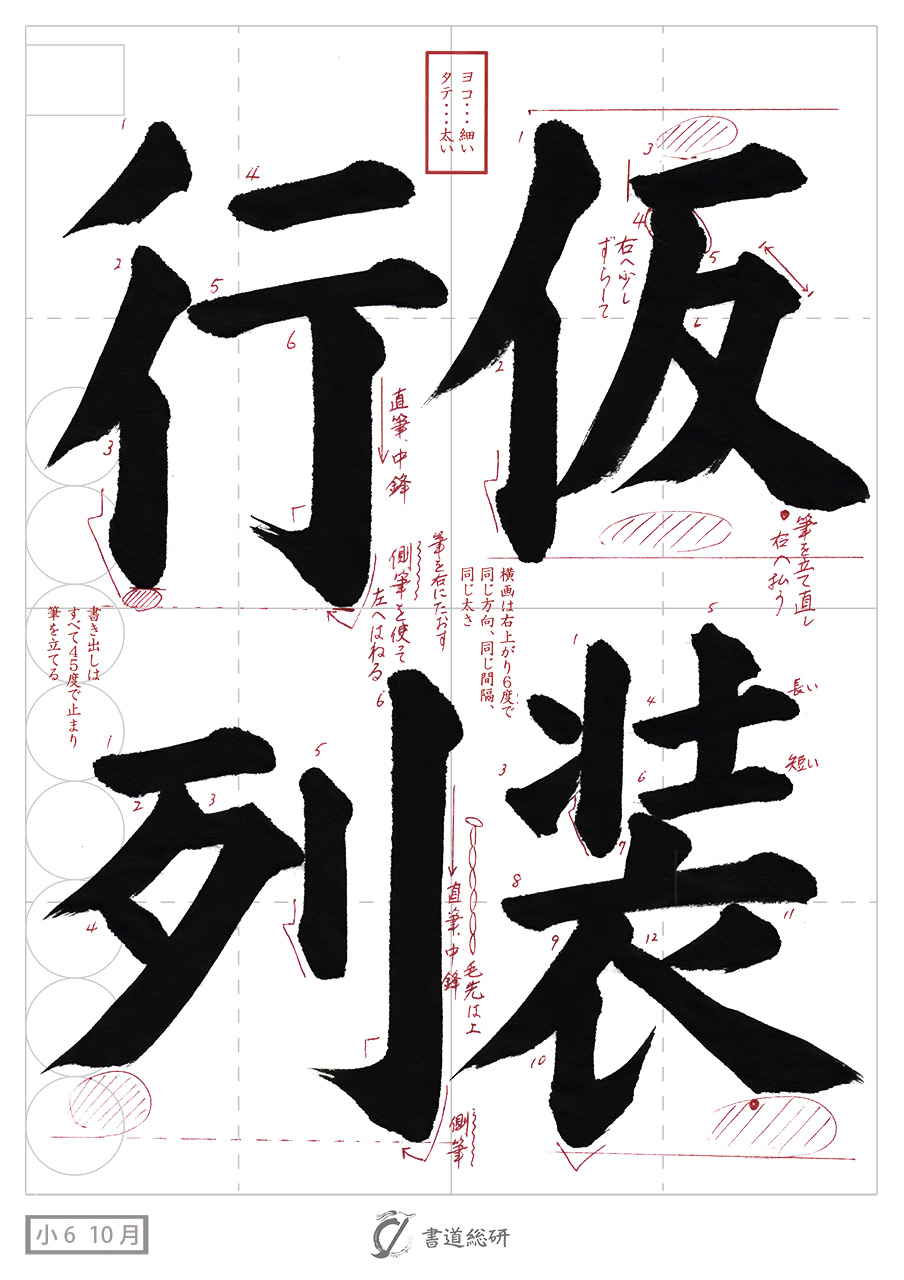 仮装
行列
ヨコ・・・細い
タテ・・・太い
1
2
3
4
5
6
右へ少し
ずらして
筆を立て直し
右へ払う
1
2
3
4
5
6
直筆、中鋒
筆を右にたおす
側筆を使って
左へはねる
横画は右上がり6度で
同じ方向、同じ間隔、
同じ太さ
書き出しは
すべて45度で止まり
筆を立てる
1
3
4
5
6
7
8
9
10
11
12
長い
短い
1
2
3
4
5
6
直筆、中鋒
毛先は上
側筆
小6 10月
書道総研